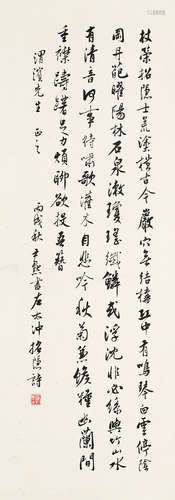 杖策招隱士荒塗橫古今巖穴無結構丘中有鳴琴白雲停陰
岡丹葩曜陽林石泉漱瓊瑤纖鱗或浮沈非必絲與竹山水
有清音何事待嘯歌灌木自悲吟秋菊兼餱糧幽蘭間
重襟躊躇足力煩聊欲投吾簪
渭濱先生 正之
丙戌秋 尹默書左太沖招隱詩